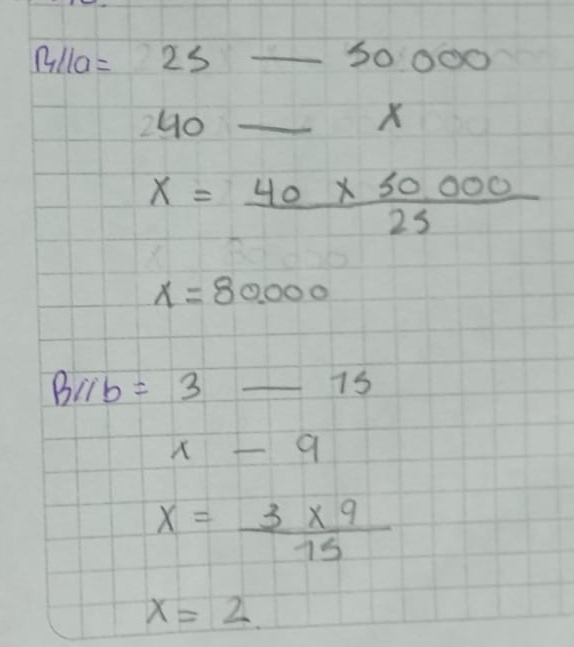 R//a= 25 — 50.000
40 — X
X = 40 x 50.000
25
X = 80.000
R//b = 3 — 15
x — 9
X = 3 x 9
15
X = 2.